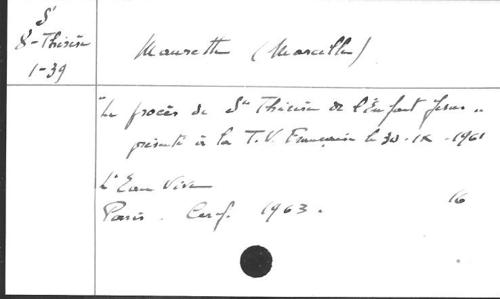 S'
S-Thérèse
1-39
Maurette (Marcelle)
"Le procès de Ste Thérèse de l'Enfant Jésus"
présenté à la T.V. Française le 30-IX-1961
L'Eau Vive
Paris. Cerf. 1963.
16